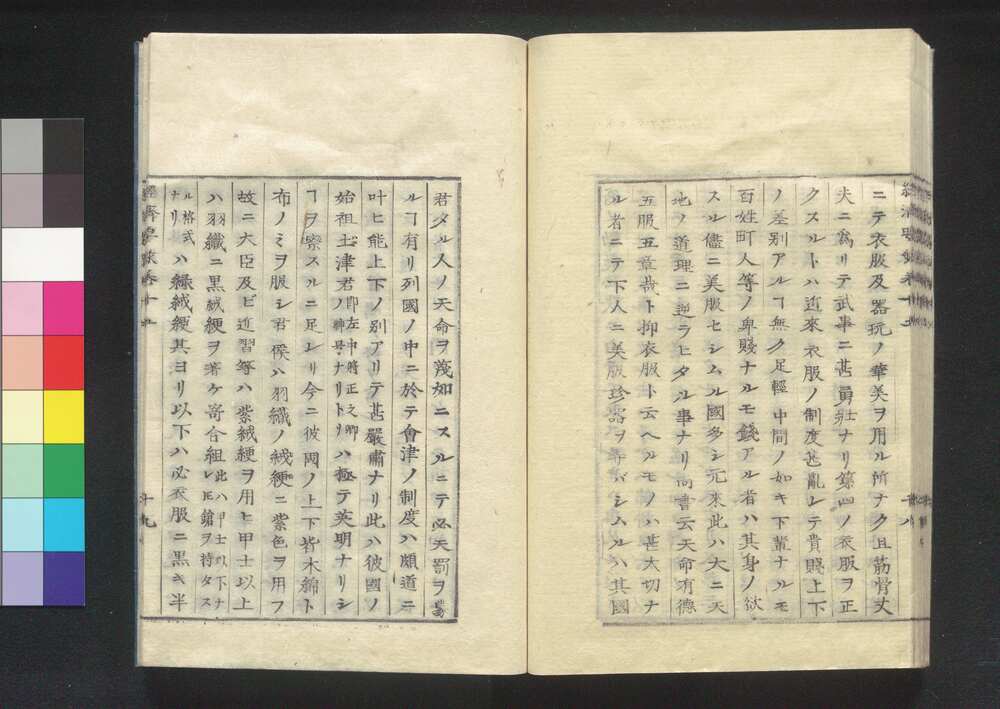 ニテ衣服及器玩ノ華美ヲ用ル所ナク且筋骨丈
夫ニ為リテ武事ニ甚勇壮ナリ第四ノ衣服ヲ正
クスルトハ近來衣服ノ制度甚亂レテ貴賤上下
ノ差別アルヿ無ク足輕中間ノ如キ下輩ナルモ
百姓町人等ノ卑賤ナルモ錢アル者ハ其身ノ欲
スル儘ニ美服セシムル國多シ元來此ハ大ニ天
地ノ道理ニ逆ラヒタル事ナリ尚書云天命有德
五服五章哉ト抑衣服ト云ヘルモノハ甚大切ナ
ル者ニテ下人ニ美服珍器ヲ等バシムルハ其國
君タル人ノ天命ヲ蔑如ニスルニテ必天罰ヲ蒙
ルヿ有リ列國ノ中ニ於テ會津ノ制度ハ頗道ニ
叶ヒ能上下ノ別アリテ甚嚴肅ナリ此ハ彼國ノ
始祖土津君ノ即左中將正之卿ノ神号ナリトリハ極テ英明ナリシ
ヿヲ察スルニ足レリ今ニ彼國ノ上下皆木綿ト
布ノミヲ服シ君侯ハ羽織ノ絨緶ニ紫色ヲ用フ
故ニ大臣及ビ近習等ハ紫絨緶ヲ用ヒ甲士以上
ハ羽織ニ黒絨緶ヲ著ケ寄合組此ハ甲士以下ナレ𪜈鎗ヲ持タス
ル格式ナリハ緑絨緶其ヨリ以下ハ必衣服ニ黒キ半
十九